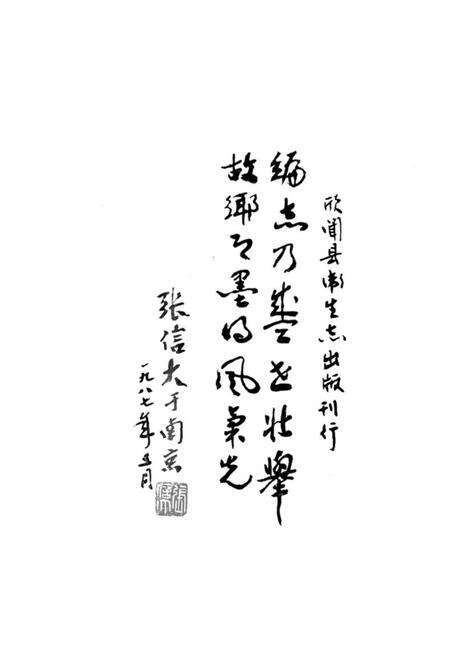 欣闻县卫生志出版刊行
编志乃盛世壮举
故乡即墨得风气先
张信大于南京
一九八七年五月